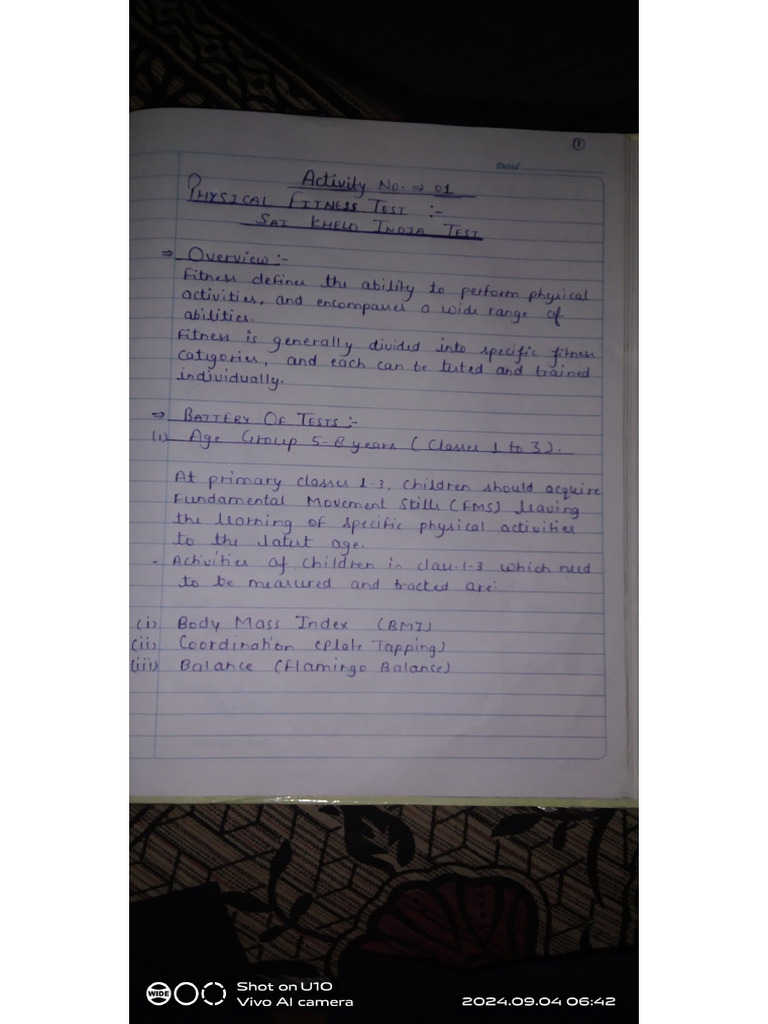 1
Dated
Activity No. ⇒ 01
PHYSICAL FITNESS TEST :-
SAI KHELO INDIA TEST
⇒ Overview :-
Fitness defines the ability to perform physical
activities, and encompasses a wide range of
abilities.
Fitness is generally divided into specific fitness
catgories, and each can be tested and trained
individually.
⇒ BATTERY OF TESTS :-
(1) Age Group 5-8 years (Classes 1 to 3).
At primary classes 1-3, children should acquire
Fundamental Movement Skills (FMS) leaving
the learning of specific physical activities
to the latest age.
. Activities of children in class-1-3 which need
to be measured and tracted are:
(i) Body Mass Index (BMI)
(ii) Coordination (Plate Tapping)
(iii) Balance (Flamingo Balance)
WIDE
Shot on U10
Vivo AI camera
2024.09.04 06:42